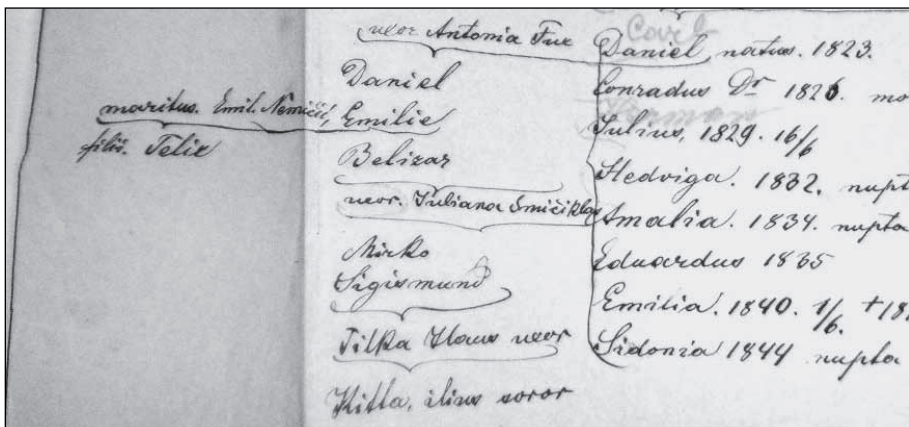 maritus. Emil. Nemičić,
filii. Felix
uxor Antonia Fux
Daniel
Emilie
Belizar
uxor. Juliana Smičiklas
Mirko
Sigismund
Tilka Klaus uxor
Kitta, ilius soror
Carl
Daniel natus. 1823.
Conradus Dr 1826. mo
Herman
Julius, 1829. 16/6
Hedviga. 1832. nupt
Amalia. 1834. nupta
Eduardus 1835
Emilia. 1840. 1/6. +18
Sidonia 1844 nupta